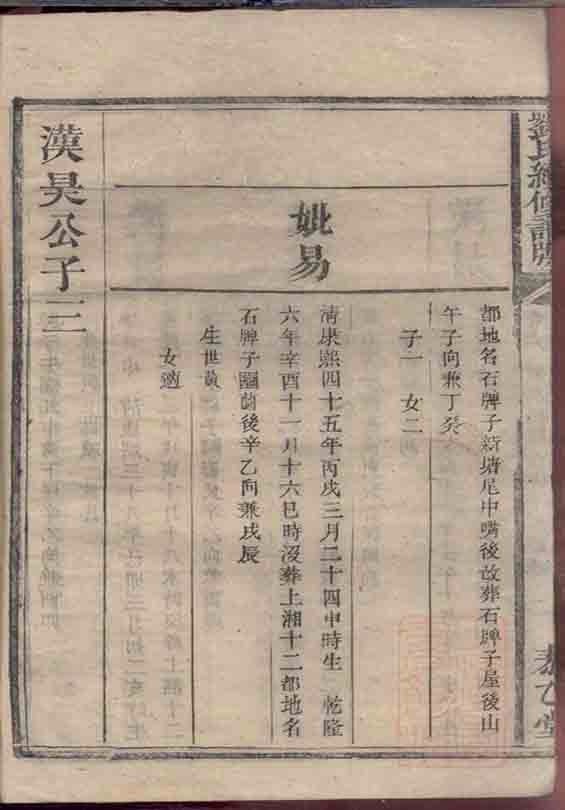 劉氏續修譜牒
泰乙堂
都地名石牌子新塘尾中嘴後改葬石牌子屋後山
午子向兼丁癸
子一 女二
妣易
清康熙四十五年丙戌三月二十四申時生 乾隆
六年辛酉十一月十六巳時沒葬上湘十二都地名
石牌子園前後辛乙向兼戌辰
生世黃
女適
漢昊公子二